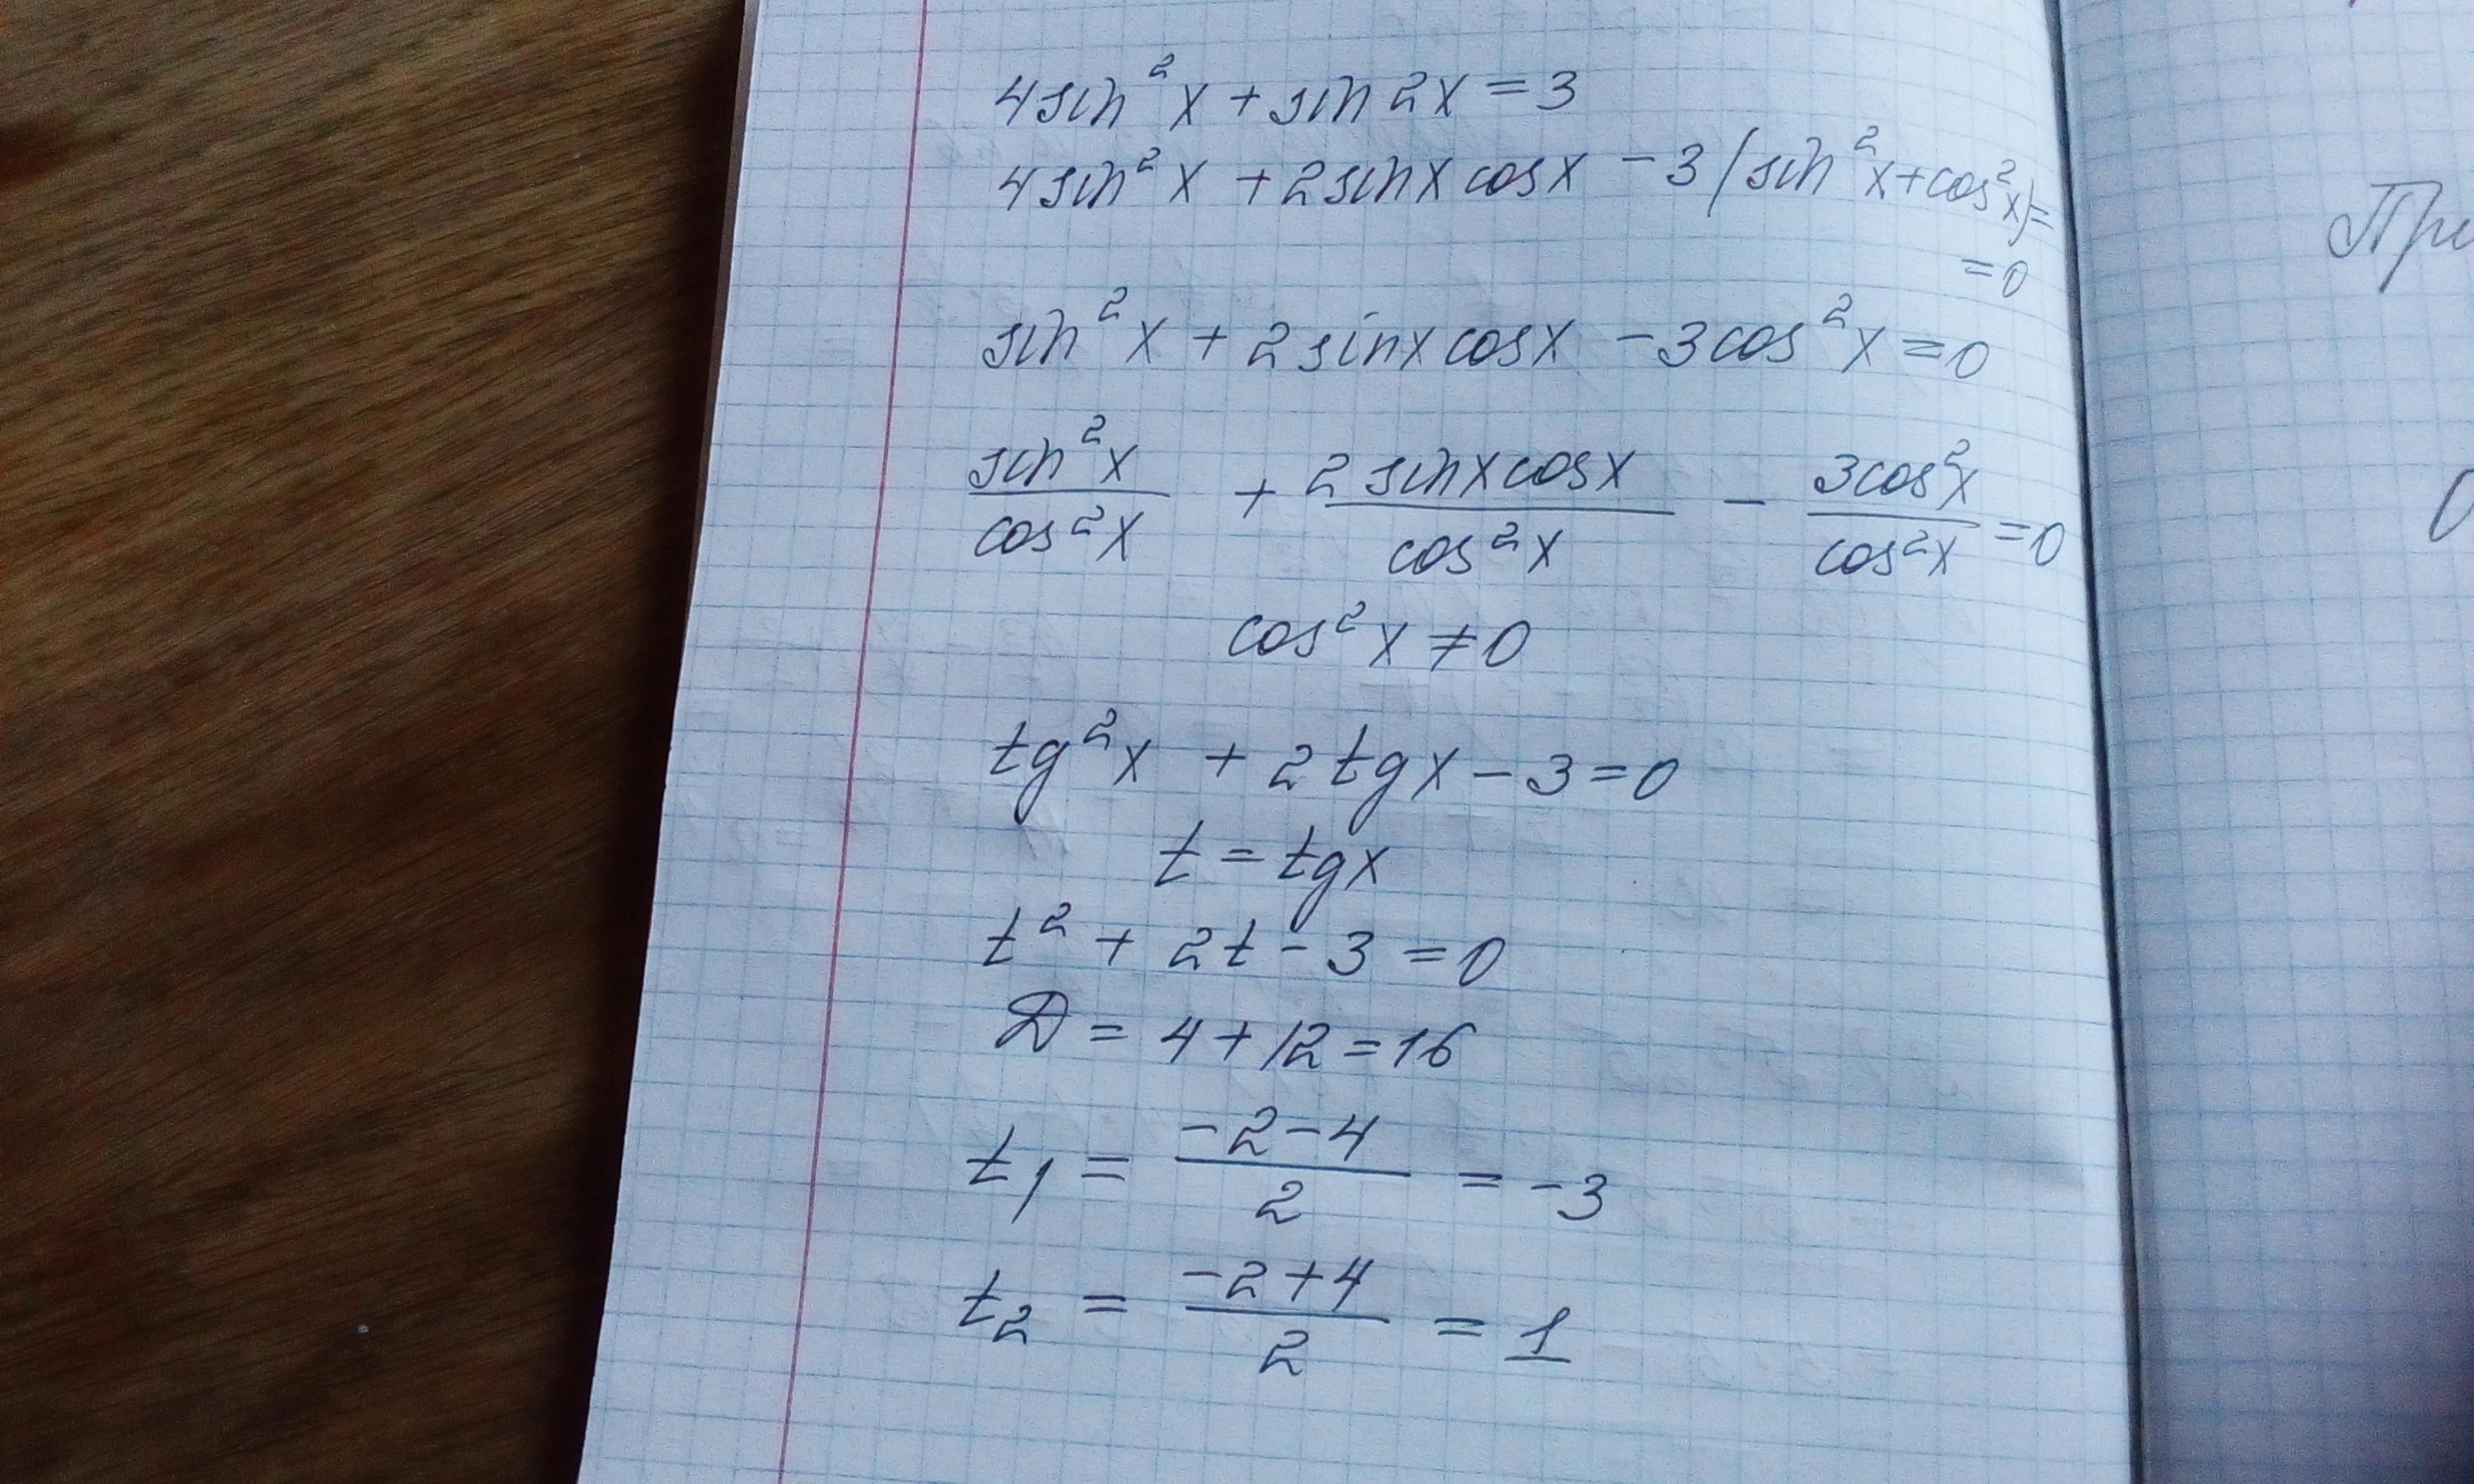 4sin²x + sin2x = 3
4sin²x + 2sinx cosx - 3(sin²x + cos²x) =
= 0
sin²x + 2sinx cosx - 3cos²x = 0
sin²x/cos²x + 2sinxcosx/cos²x - 3cos²x/cos²x = 0
cos²x ≠ 0
tg²x + 2tgx - 3 = 0
t = tgx
t² + 2t - 3 = 0
D = 4 + 12 = 16
t₁ = (-2-4)/2 = -3
t₂ = (-2+4)/2 = 1